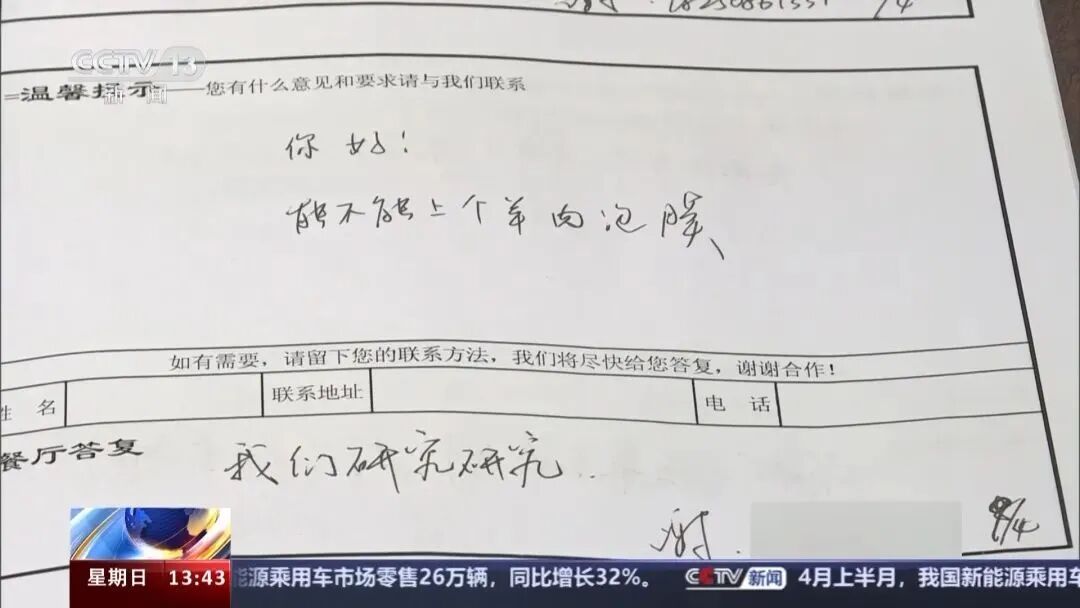 18250861551 /4
CCTV 13
新闻
=温馨提示——您有什么意见和要求请与我们联系
你好！
能不能上个羊肉泡膜
如有需要，请留下您的联系方法，我们将尽快给您答复，谢谢合作！
姓 名 联系地址 电 话
餐厅答复
我们研究研究..
9/4
星期日 13:43 能源乘用车市场零售26万辆，同比增长32%。 CCTV 新闻 4月上半月，我国新能源乘用车